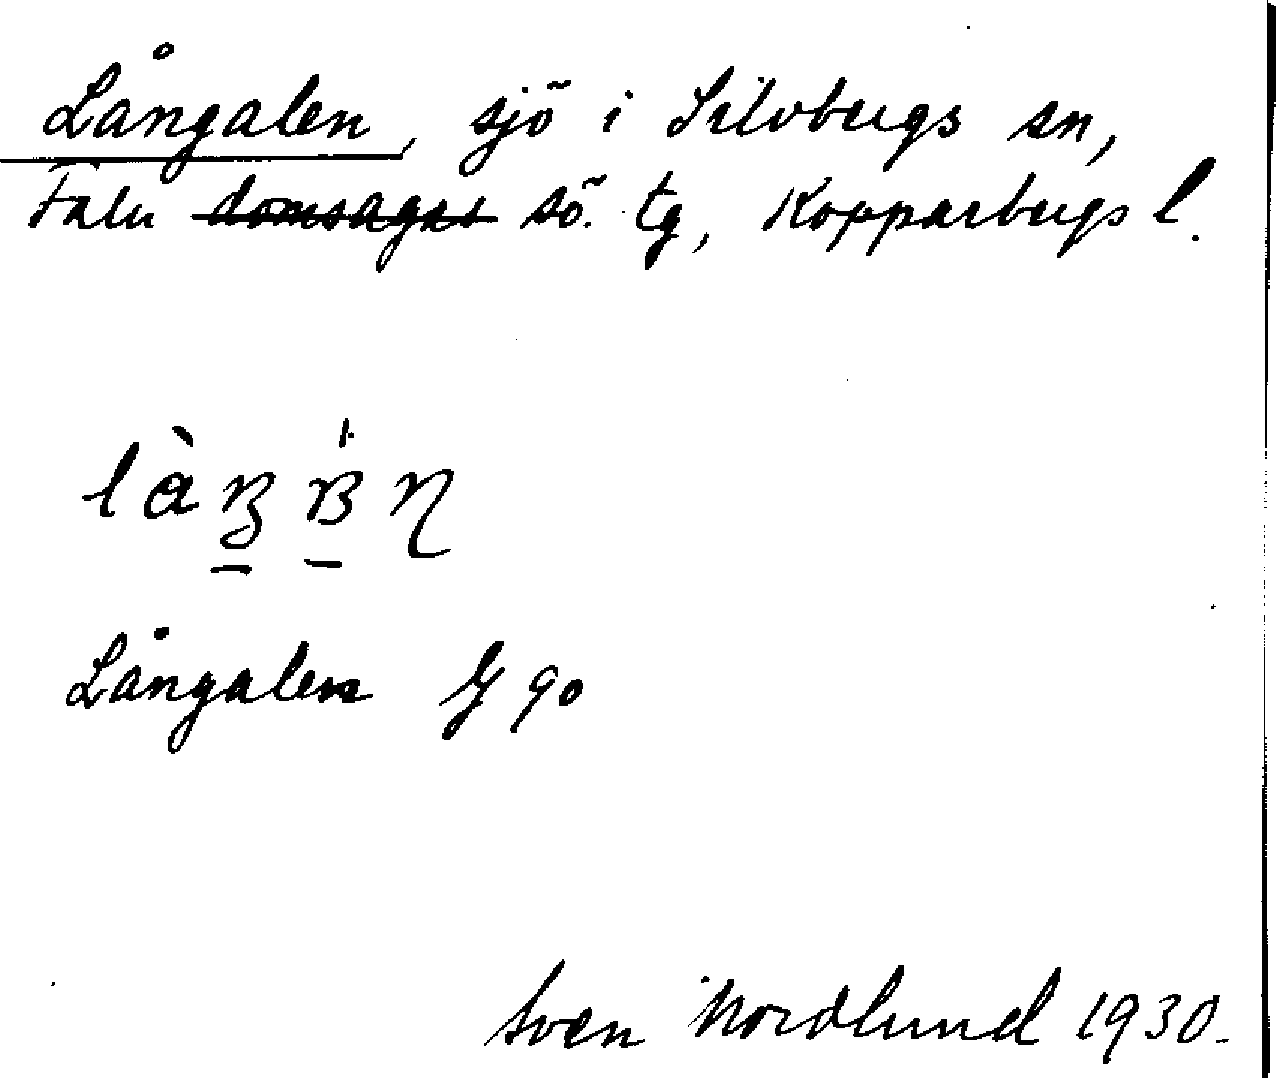 Långalen, sjö i Silvbergs sn,
Falu domsagas sö. tg, Kopparbergs l.
Långalen G 90
Sven Nordlund 1930.